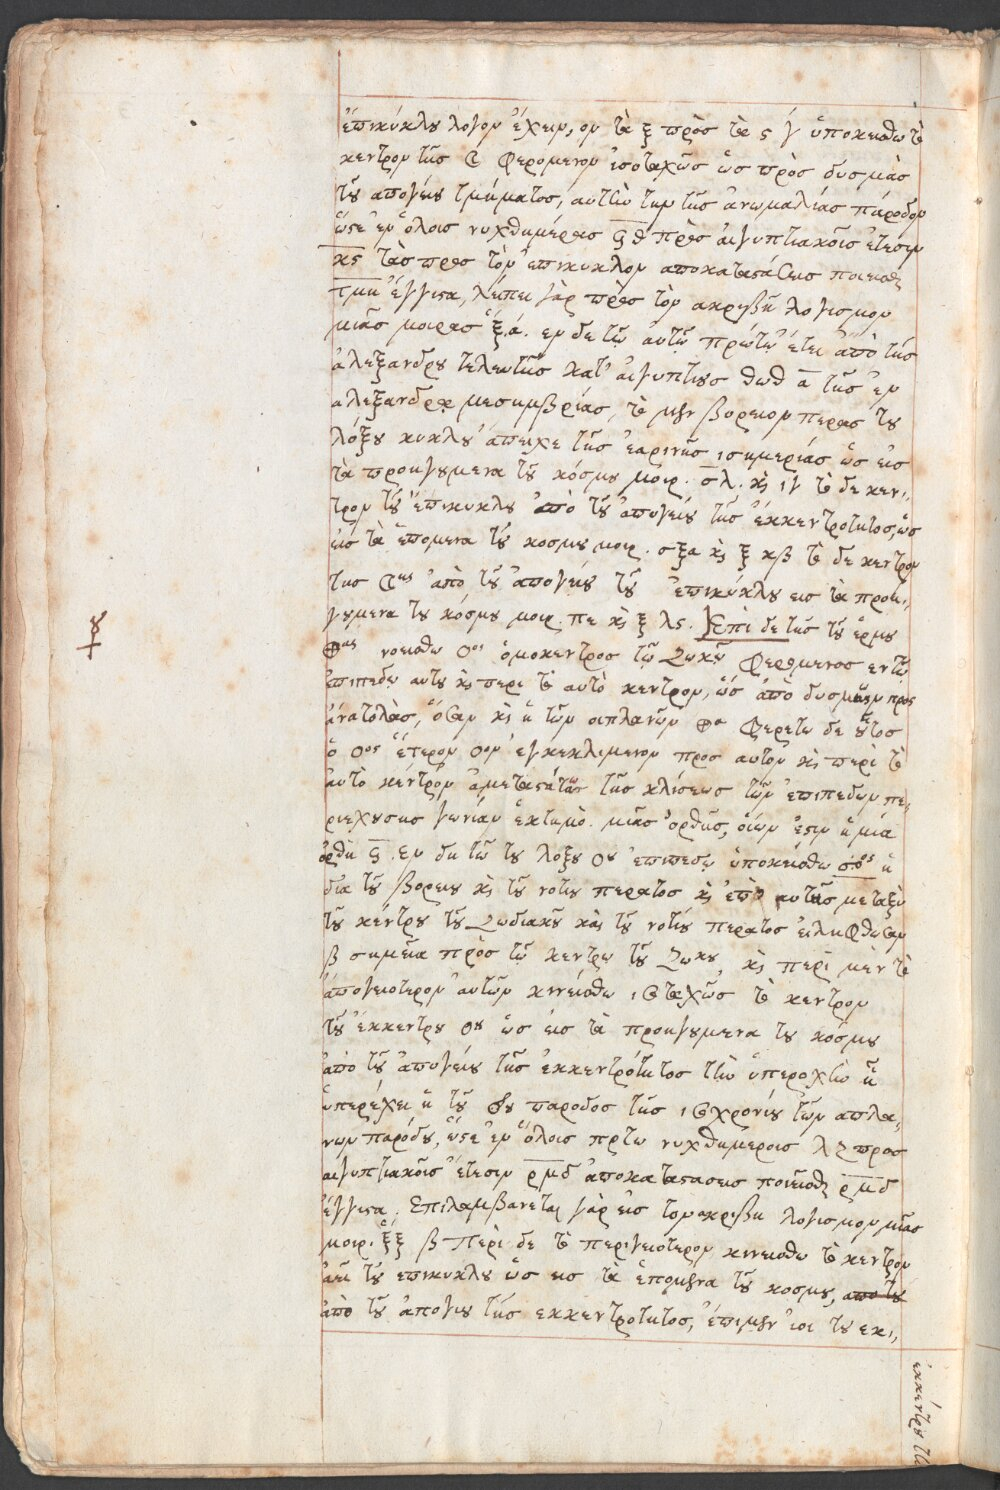 ἐπικύκλου λόγον ἔχειν, ον τὰ ξ πρὸς τὰ ς γ´ ὑποκείσθω τὸ
κεντρον τῆς ☾ φερομενον ἰσοταχῶς ὡς πρὸς δυσμὰς
τοῦ απογείου τμήματος, αυτὴν τὴν τῆς ἀνωμαλίας πάροδον
ὥστε ἐν ὅλοις νυχθημέραις ϟθ πρὸς αἰγυπτιακοῖς ἔτεσιν
κς τὰς προς τὸν ἐπικυκλον αποκαταστάσεις ποιεῖσθαι
τμη ἔγγιστα, λείπει γὰρ πρὸς τὸν ακριβῆ λογισμον
μιᾶς μοιρας ἑξ.ά. εν δε τῷ αὐτῷ πρώτῳ ἔτει ἀπὸ τῆς
ἀλεξανδρου τελευτῆς κατ' αἰγυπτίους θωθ α τῆς ἐν
αλεξανδρεια μεσημβρίας, τὸ μὲν βορειον περας τοῦ
λόξου κυκλου ἀπειχε τῆς ἐαρινῆς ισημερίας ὡς εις
τὰ προηγουμενα τοῦ κόσμου μοιρ. σλ. κὶ ιγ τὸ δε κεν,,
τρον τοῦ ἐπικυκλου ἀπὸ τοῦ ἀπογείου τῆς ἐκκεντροτητος, ὡς
εις τὰ ἑπομενα τοῦ κοσμου μοιρ. σξα κὶ ξ κβ τὸ δε κεντρον
της ☾ης ἀπὸ τοῦ ἀπογείου τοῦ ἐπικύκλου εις τὰ προη,,
γουμενα του κόσμου μοιρ. πε κὶ ξ λς. Ἐπὶ δε τῆς τοῦ ἑρμοῦ
νοεισθω Οος ὁμοκεντρος τῷ Ζωκῷ φερομενος εν τῷ
ἐπιπεδῳ αυτου κὶ περι τὸ αυτὸ κεντρον, ὡς ἀπὸ δυσμῶν προς
ἀνατολὰς, ὅσην κὶ ἡ τῶν απλανῶν φερετω δε οὗτος
ὁ Οος ἕτερον Οον ἐγκεκλιμενον προς αυτὸν κὶ περὶ τὸ
ἀυτὸ κεντρον ἀμεταστάτως τῆς κλίσεως τῶν ἐπιπεδων πε,
ριεχουσης γωνίαν ἑκτημο. μιᾶς ὀρθῆς, οἵων ἐστιν ἡ μιὰ
ὀρθὴ ϟ. Εν δη τῷ του λοξου Ου ἐπιπεδῳ ὑποκείσθω ἡ
διὰ τοῦ βορειου κὶ τοῦ νοτιου περατος κὶ ἐπ' αυτῆς μεταξὺ
τοῦ κέντρου τοῦ Ζωδιακοῦ κὶ τοῦ νοτίου περατος εἰληφθωσαν
β σημεῖα πρὸς τῷ κεντρῳ τοῦ Ζωκου, κὶ περὶ μὲν τὸ
ἀπογειοτερον ἀυτῶν κινείσθω ισοταχῶς τὸ κεντρον
τοῦ ἐκκεντρου Ου ὡς εἰς τὰ προηγουμενα του κόσμου
ἀπὸ τοῦ ἀπογείου τῆς ἐκκεντρότητος τὴν ὑπεροχὴν ᾗ
ὑπερέχει ἡ τοῦ παροδος τῆς ισοχρονίου τῶν απλα,
νων παρόδου, ὥστε ἐν ὅλοις νυχθημεροις λζ προς
αιγυπτιακοῖς ἔτεσιν ρμδ ἀποκαταστασεις ποιεῖσθαι ρμδ
ἔγγιστα. Επιλαμβανεται γὰρ εἰς τον ακριβη λογισμον μιᾶς
μοιρ. ἑξξ β Περὶ δε τὸ περιγειοτερον κινεισθω τὸ κεντρον
ἀεὶ τοῦ επικυκλου ὡς εις τὰ ἑπομενα τοῦ κοσμου, απο του
ἀπὸ τοῦ ἀπογειου τῆς εκκεντροτητος, του εκι,,
ἐκκέντρου